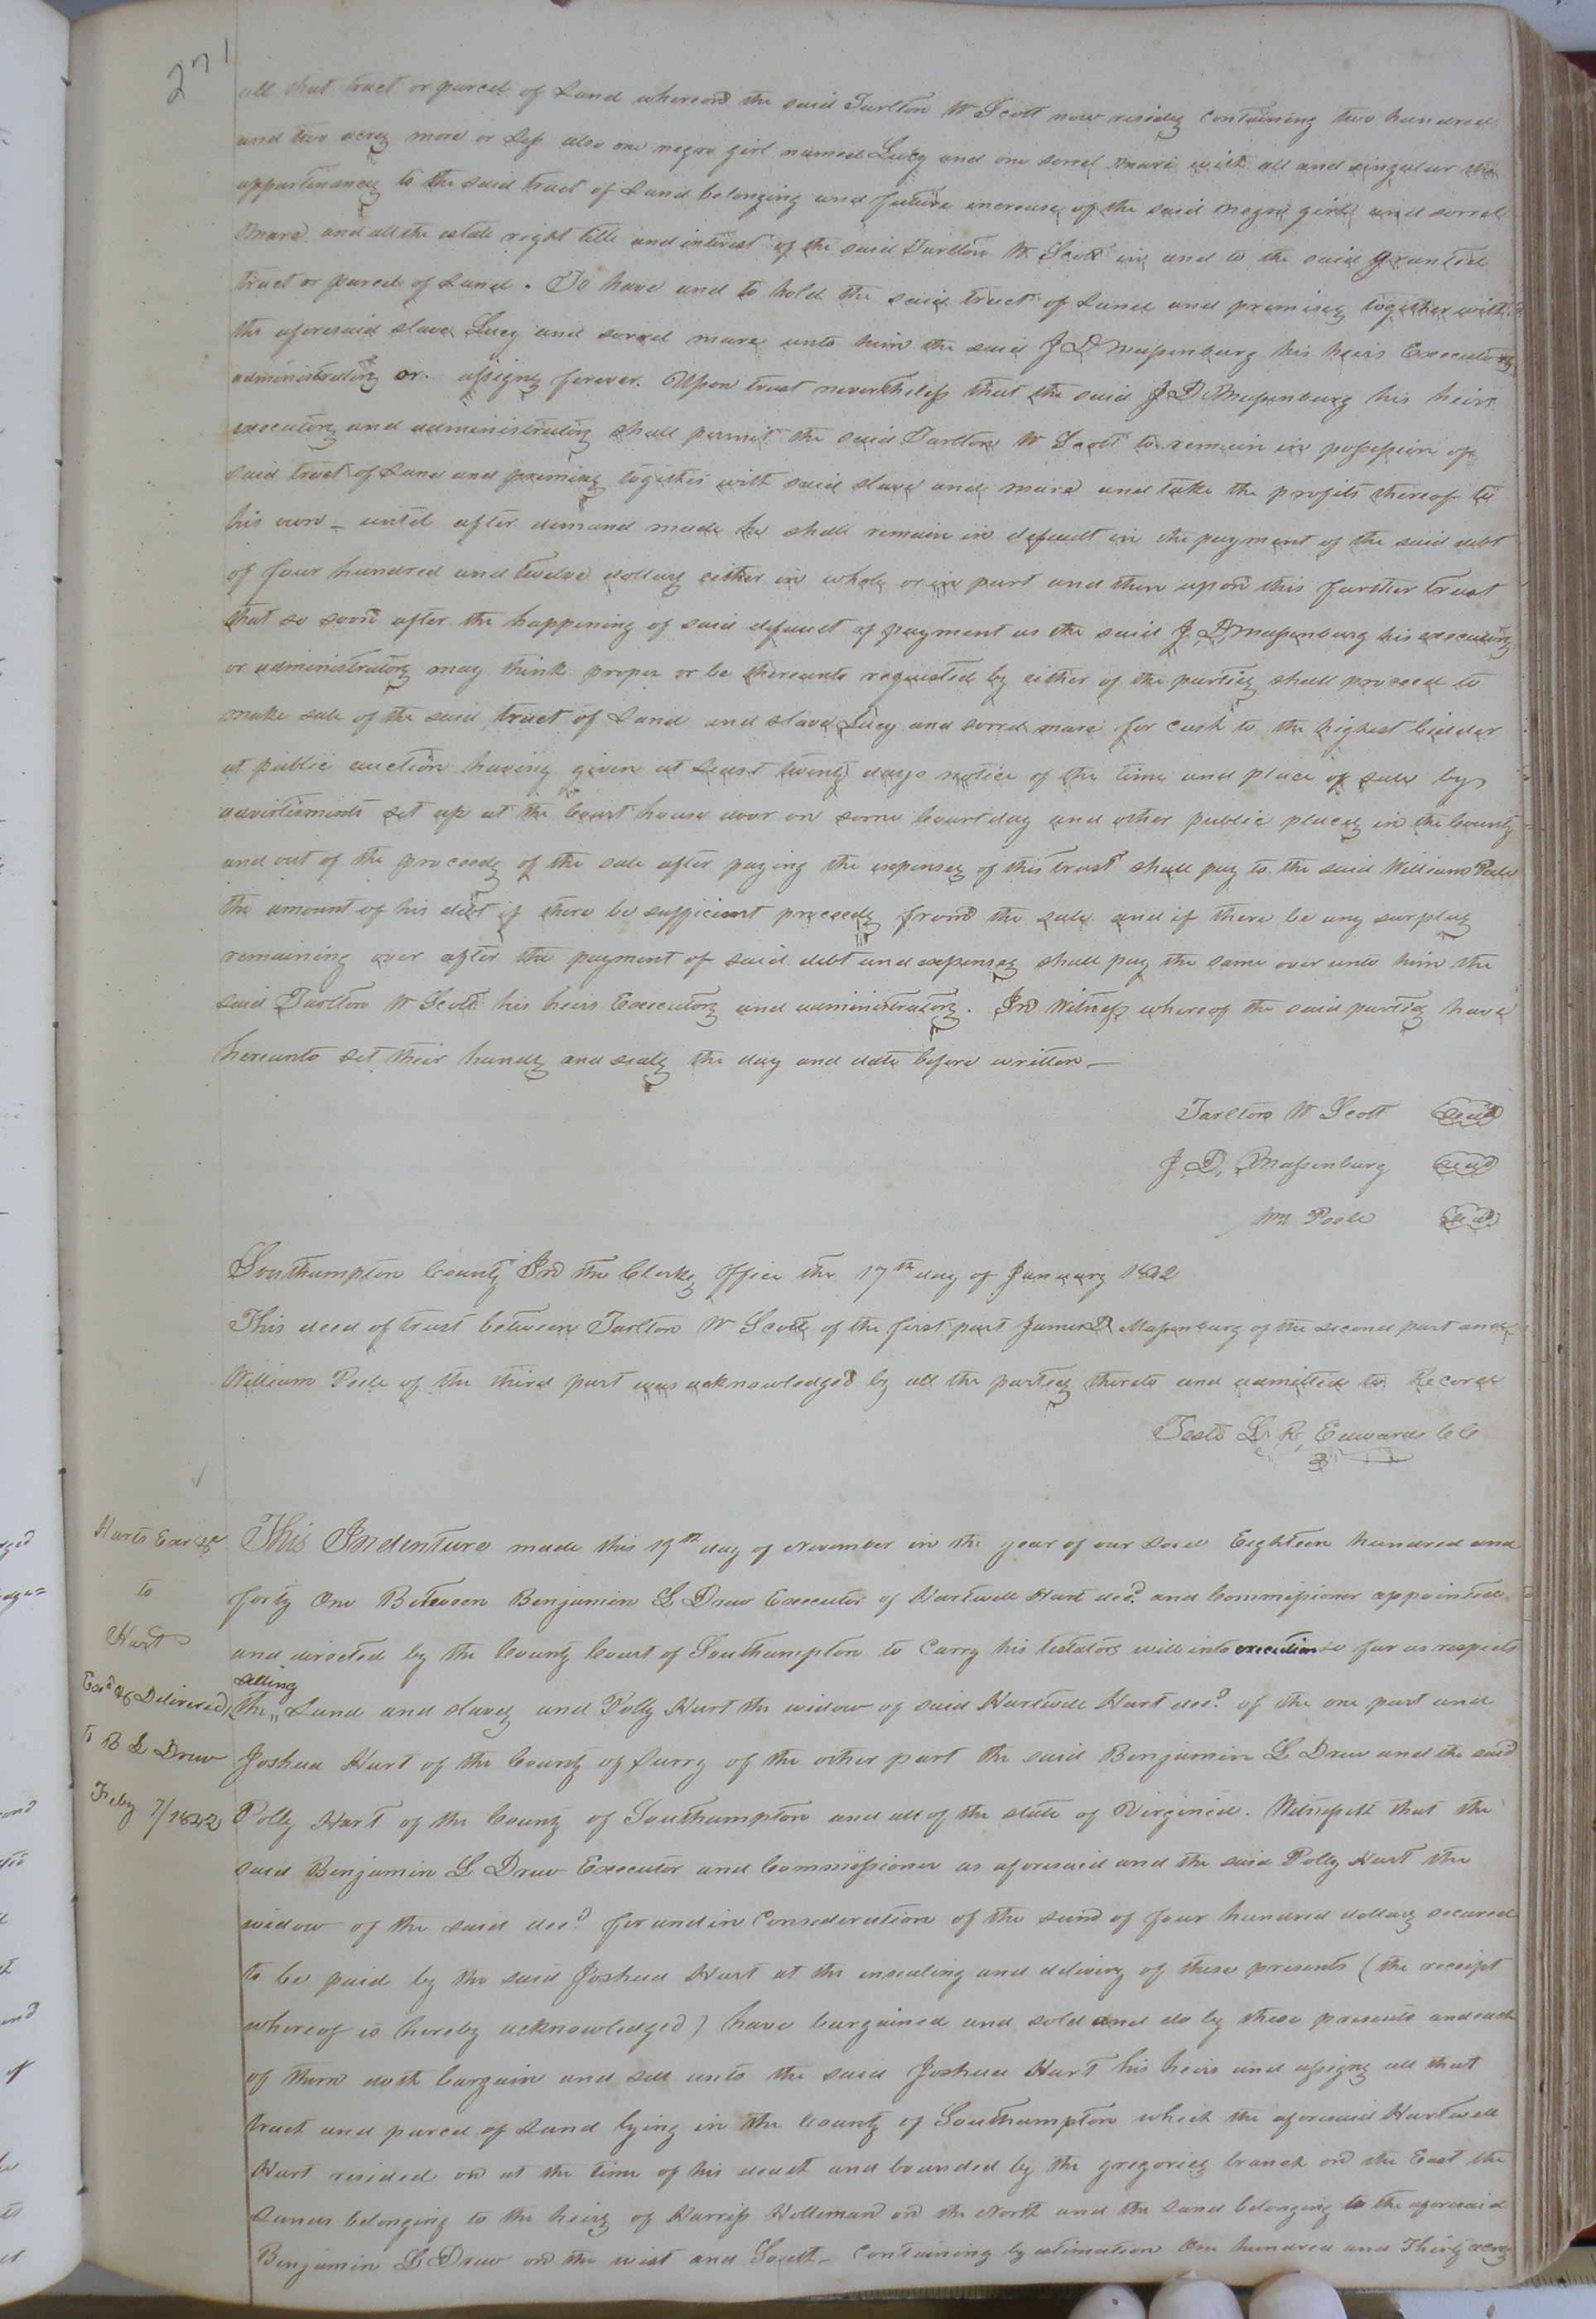 271
all that tract or parcel of Land whereon the said Tarlton W Scott now resides containing two hundred
and two acres more or less also one negro girl named Lucy and one sorrel mare with all and singular the
appertinances to the said tract of Land belonging and future increase of the said negro girl and sorrel
mare and all the estate right title and interest of the said Tarlton W Scott in and to the said granted
tract or parcel of Land. To have and to hold the said tract of Land and premises together with
the aforesaid slave Lucy and sorrel mare unto him the said J D Massenburg his heirs Executors
administrators or assigns forever. Upon trust nevertheless that the said J D Massenburg his heirs
executors and administrators shall permit the said Tarlton W Scott to remain in possession of
said tract of Land and premises together with said slave and mare and take the profits thereof to
his own _ until after demand made he shall remain in default in the payment of the said debt
of four hundred and twelve dollars either in whole or in part and then upon this further trust
that so soon after the happening of said default of payment as the said J. D. Massenburg his executors
or administrators may think proper or be thereunto requested by either of the parties shall proceed to
make sale of the said tract of Land and slave Lucy and sorrel mare for cash to the highest bidder
at public auction having given at Least twenty days notice of the time and place of sale by
advertisments set up at the Court house door on some Court day and other public places in the County
and out of the proceeds of the sale after paying the expenses of this trust shall pay to the said William Peele
the amount of his debt if there be sufficient proceeds from the sale and if there be any surplus
remaining over after the payment of said debt and expenses shall pay the same over unto him the
said Tarlton W Scott his heirs Executors and administrators. In Witness whereof the said parties have
hereunto set their hands and seals the day and date before written _
Tarlton W Scott Seal
J. D. Massenburg Seal
Wm Peele Seal
Southampton County In the Clerks Office the 17th day of January 1842
This deed of trust between Tarlton W Scott of the first part James D Massenburg of the second part and
William Peele of the third part was acknowledged by all the parties thereto and admitted to Record
Teste L. R. Edwards CC
Harts Exor &c
to
Hart
Exd & Delivered
to B L Drew
Feby 7/1842
This Indenture made this 19th day of November in the year of our Lord Eighteen hundred and
forty One Between Benjamin L Drew Executor of Hartwell Hart decd and Commissioner appointed
and directed by the County Court of Southampton to Carry his testators will into execution so far as respects
selling
the Land and slaves and Polly Hart the widow of said Hartwell Hart decd of the one part and
Joshua Hart of the County of Surry of the other part the said Benjamin L Drew and the said
Polly Hart of the County of Southampton and all of the state of Virginia. Witnesseth that the
said Benjamin L Drew Executor and Commissioner as aforesaid and the said Polly Hart the
widow of the said decd for and in Consideration of the sum of four hundred dollars secured
to be paid by the said Joshua Hart at the ensealing and delivery of these presents (the receipt
whereof is hereby acknowledged) have bargained and sold and do by these presents and each
of them doth bargain and sell unto the said Joshua Hart his heirs and assigns all that
tract and parcel of Land lying in the County of Southampton which the aforesaid Hartwell
Hart resided on at the time of his death and bounded by the gregories branch on the East the
Lands belonging to the heirs of Harris Holleman on the North and the Land belonging to the aforesaid
Benjamin L Drew on the west and South _ Containing by estimation One hundred and Thirty acres